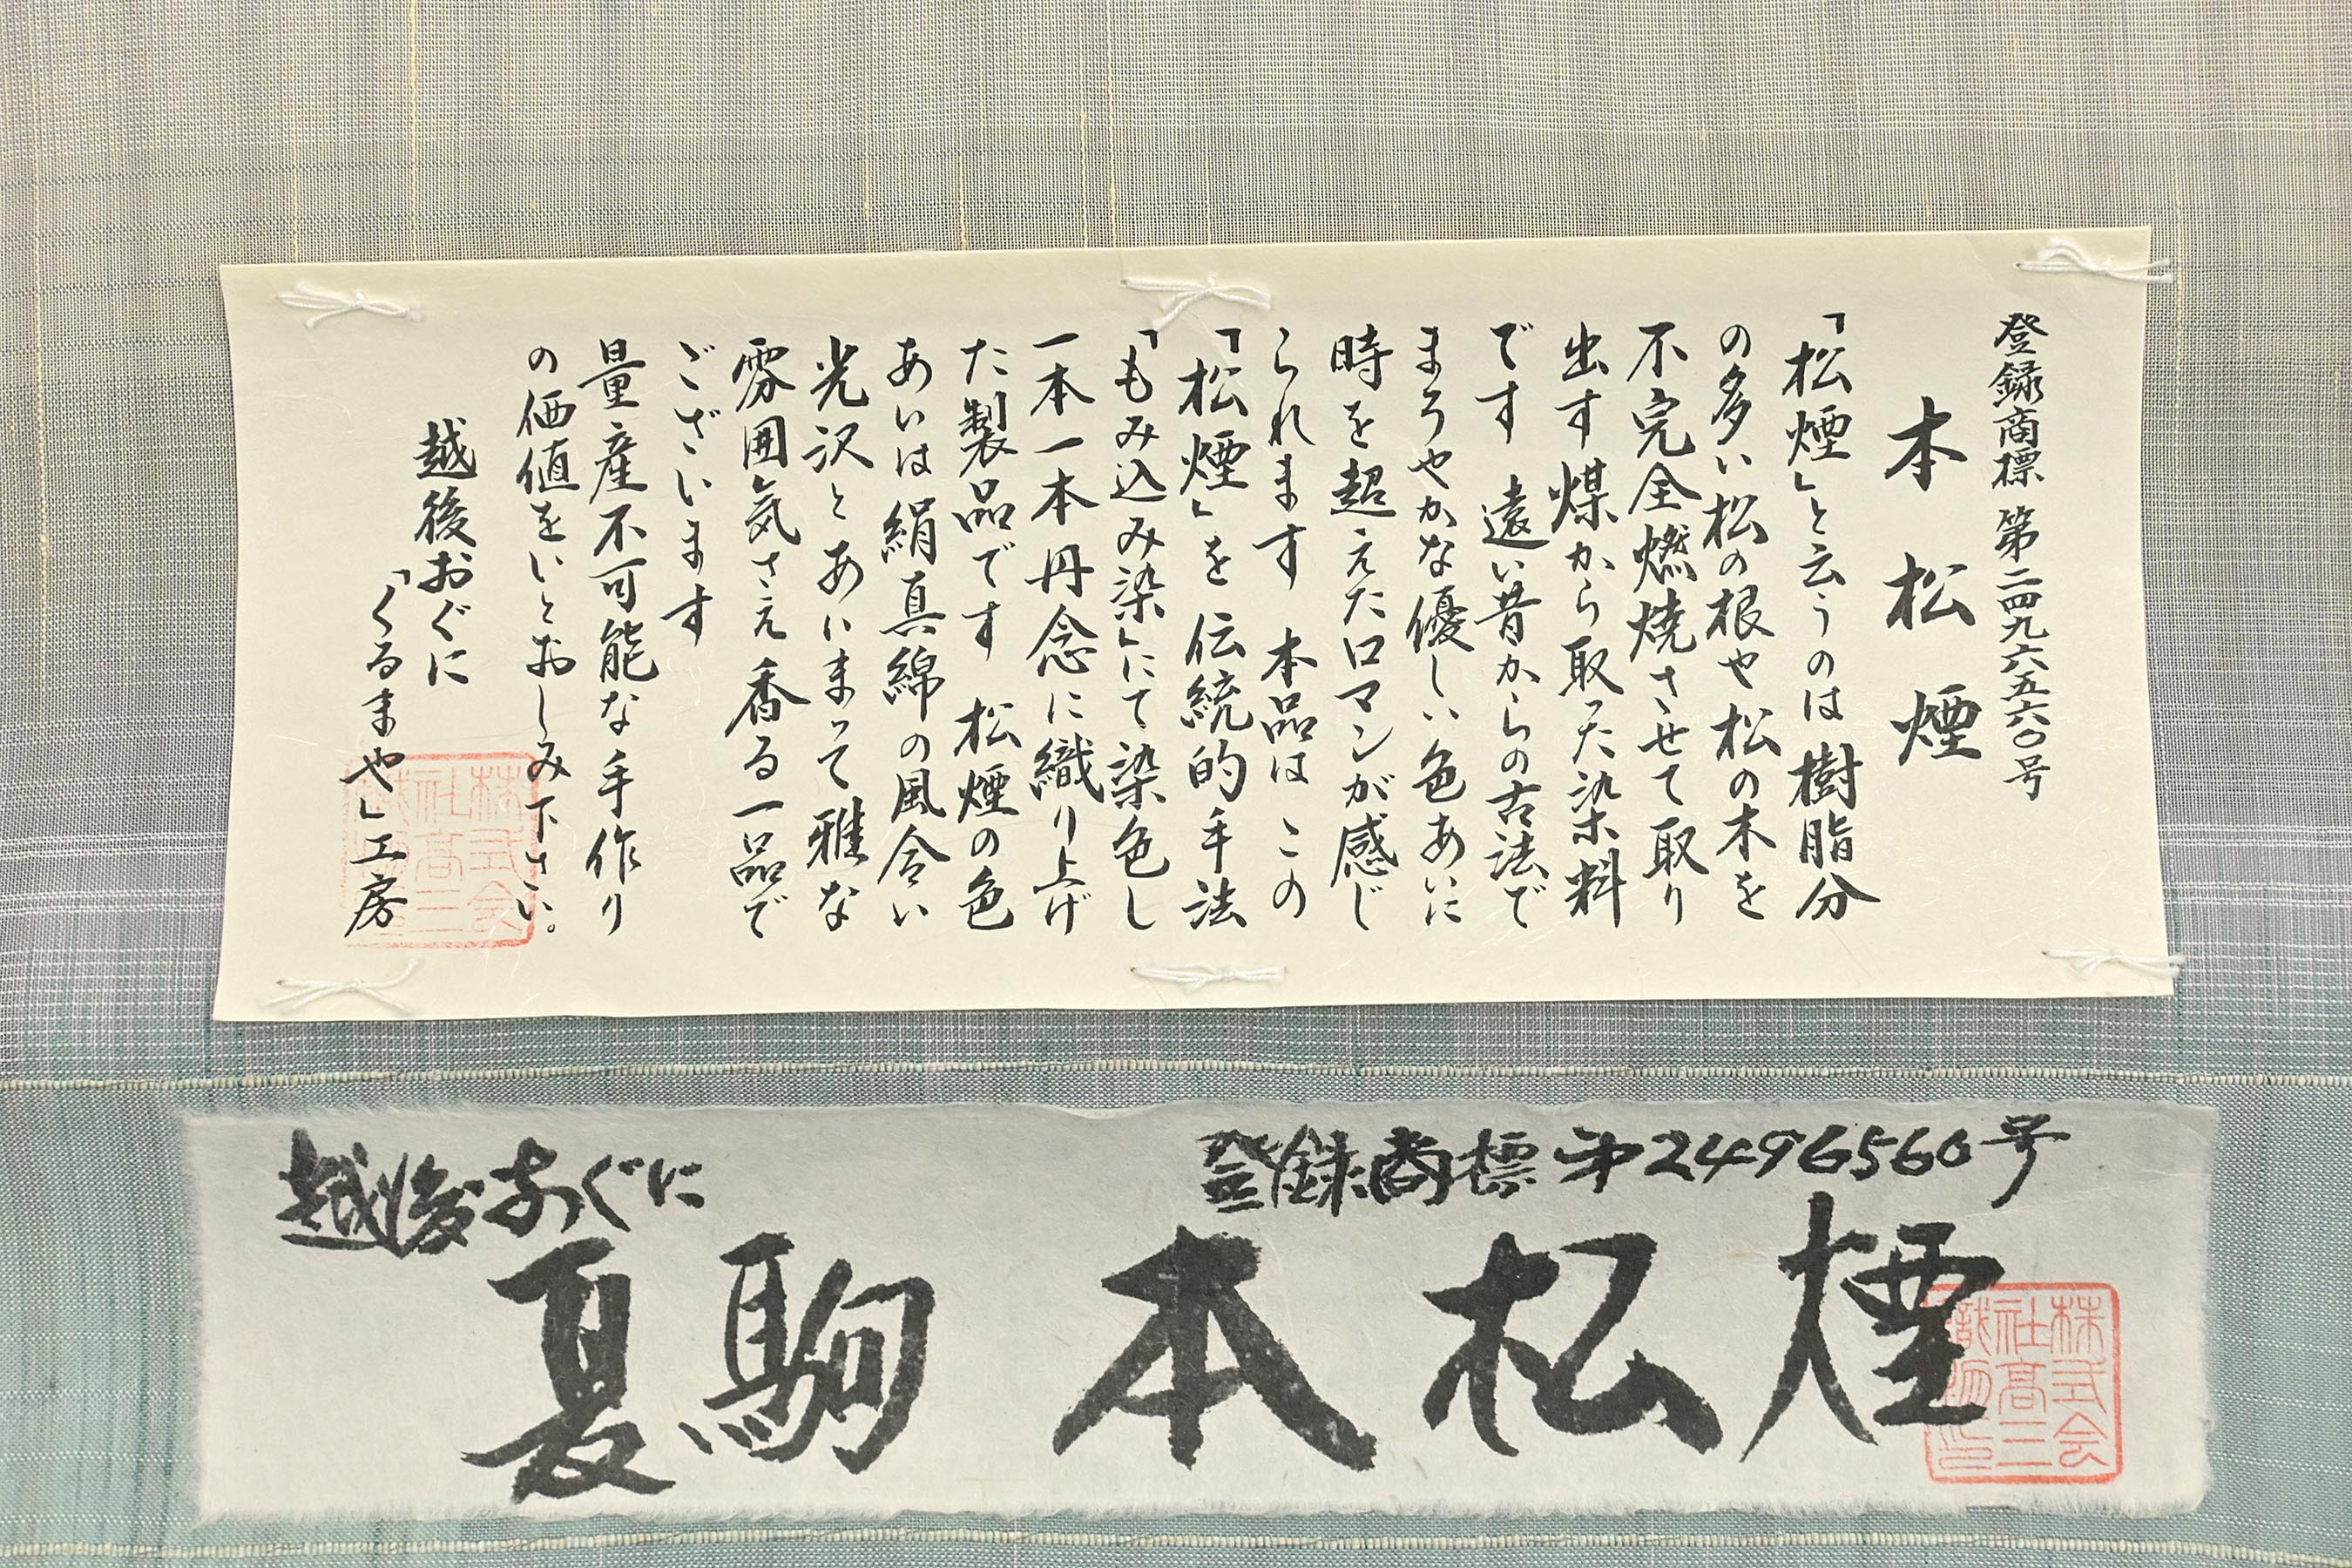 登録商標 第二四九六五六〇号
本松煙
「松煙」と云うのは樹脂分
の多い松の根や松の木を
不完全燃焼させて取り
出す煤から取った染料
です 遠い昔からの古法で
まろやかな優しい色あいに
時を超えたロマンが感じ
られます 本品は この
「松煙」を伝統的手法
「もみ込み染」にて染色し
一本一本丹念に織り上げ
た製品です 松煙の色
あいは絹真綿の風合い
光沢とあいまって雅な
雰囲気さえ香る一品で
ございます
量産不可能な手作り
の価値をいとおしみ下さい。
越後おぐに
「くるまや」工房
株式会
社高三
織物
登録商標第2496560号
越後おぐに
夏駒 本松煙
株式会
社高三
織物